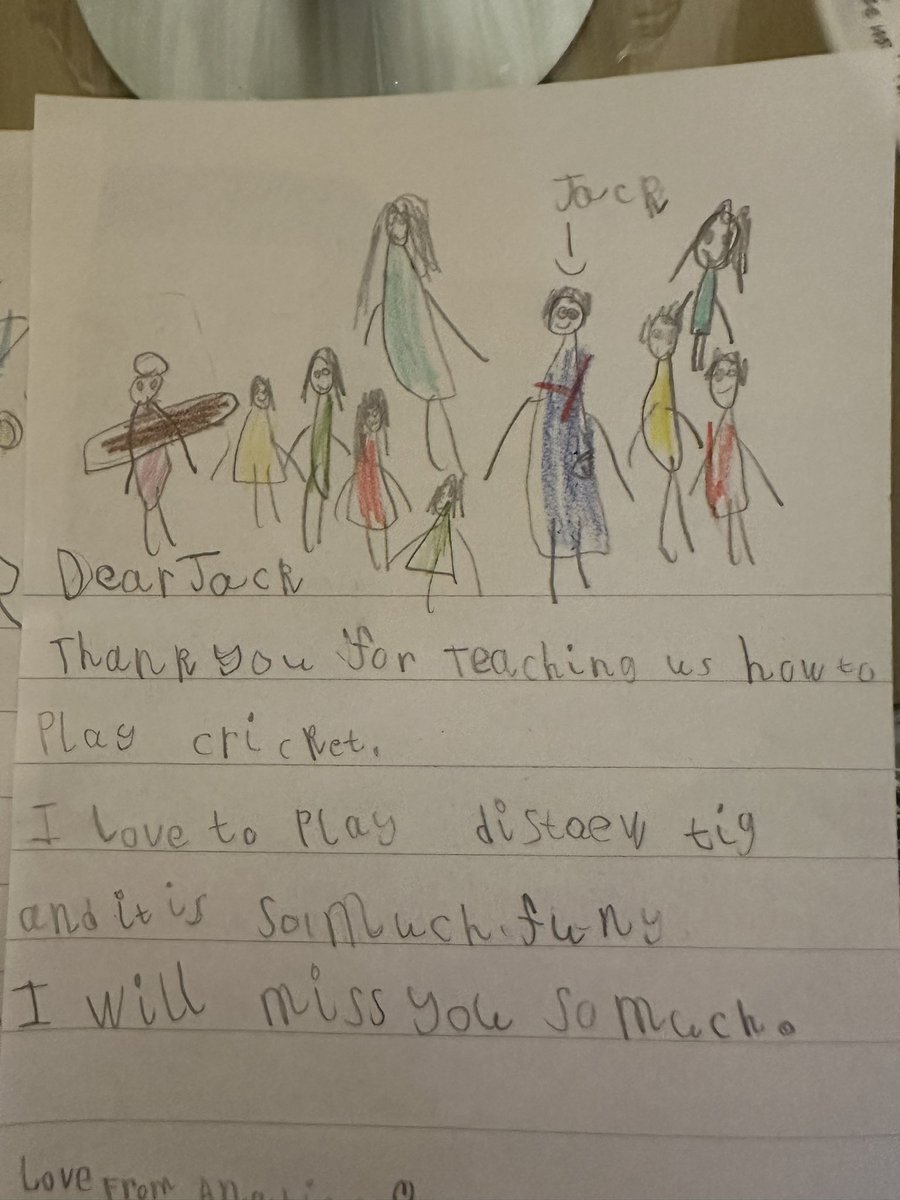 Jack
Dear Jack
Thank you for teaching us how to
Play cricket.
I love to Play distaew tig
and it is so much funy
I will miss you so much.
Love From